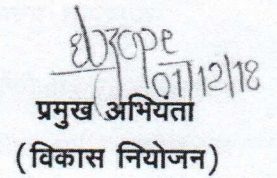 01/12/18
प्रमुख अभियंता
(विकास नियोजन)